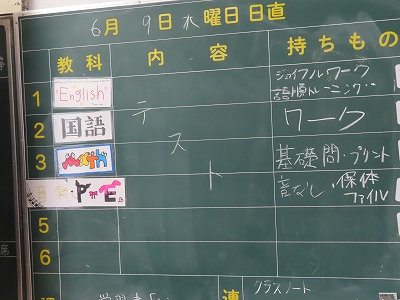 6月 9日水曜日日直
教科 内容 持ちもの
1 "English" ジョイフルワーク
語順トレーニング‥
2 国語 テスト ワーク
3 math 基礎問・プリント
音楽 P・E 音なし・保体
ファイル
5
6
連 クラスノート